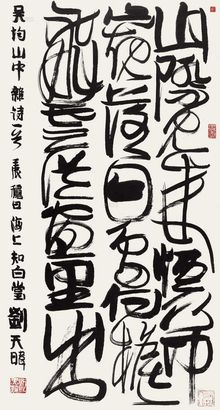 山際見來煙竹中
窺落日鳥向檐
上飛雲從窗裏出
吴均山中雜詩 日海上知白堂劉天暐